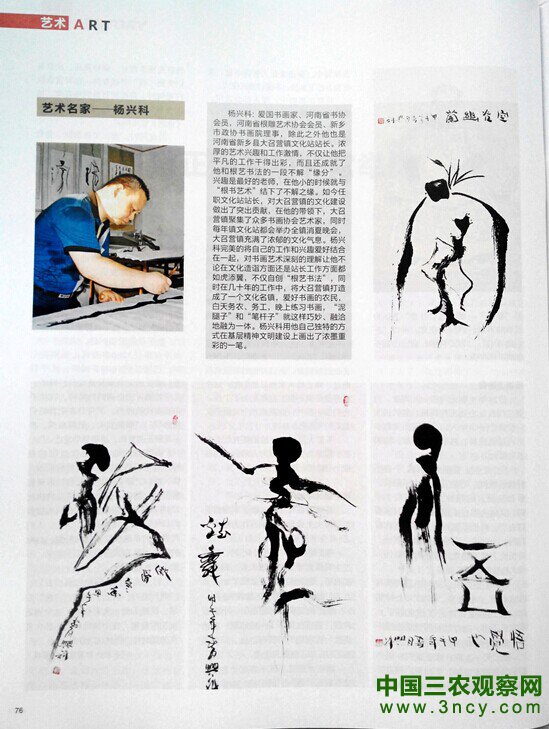 艺术 ART
艺术名家——杨兴科
杨兴科：爱国书画家、河南省书协
会员、河南省根雕艺术协会会员、新乡
市政协书画院理事，除此之外他也是
河南省新乡县大召营镇文化站站长。浓
厚的艺术兴趣和工作激情，不仅让他把
平凡的工作干得出彩，而且还成就了
他和根艺书法的一段不解“缘分”。
兴趣是最好的老师，在他小的时候就与
“根书艺术”结下了不解之缘。如今任
职文化站站长，对大召营镇的文化建设
做出了突出贡献，在他的带领下，大召
营镇聚集了众多书画协会艺术家，同时
每年镇文化站都会举办全镇消夏晚会，
大召营镇充满了浓郁的文化气息。杨兴
科完美的将自己的工作和兴趣爱好结合
在一起，对书画艺术深刻的理解让他不
论在文化造诣方面还是站长工作方面都
如虎添翼，不仅自创“根艺书法”，同
时在几十年的工作中，将大召营镇打造
成了一个文化名镇，爱好书画的农民，
白天务农、务工，晚上练习书画，“泥
腿子”和“笔杆子”就这样巧妙、融洽
地融为一体。杨兴科用他自己独特的方
式在基层精神文明建设上画出了浓墨重
彩的一笔。
空谷幽兰
76
中国三农观察网
www.3ncy.com